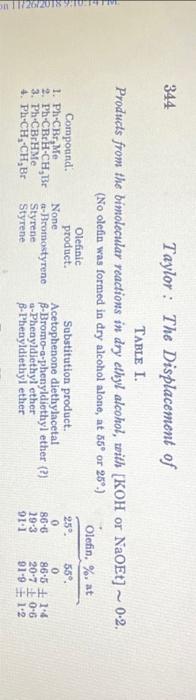 on 11/26/2018 9:10:14 PM.
344 Taylor : The Displacement of
TABLE I.
Products from the bimolecular reactions in dry ethyl alcohol, with [KOH or NaOEt] ~ 0·2.
(No olefin was formed in dry alcohol alone, at 55° or 25°.)
Olefin, %, at
Compound. Olefinic product. Substitution product. 25°. 55°.
1. Ph·CBr₂Me None Acetophenone diethylacetal 0 0
2. Ph·CBrH·CH₂Br α-Bromostyrene β-Bromo-α-phenyldiethyl ether (?) 86·6 86·5 ± 1·4
3. Ph·CBrHMe Styrene α-Phenyldiethyl ether 19·3 20·7 ± 0·6
4. Ph·CH₂·CH₂Br Styrene β-Phenyldiethyl ether 91·1 91·9 ± 1·2